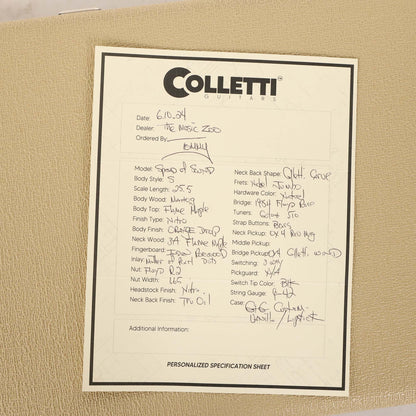 COLLETTI
GUITARS
Date: 6.10.24
Dealer: THE MUSIC ZOO
Ordered By:
TOMMY
Model: Speed of Sound
Body Style: S
Scale Length: 25.5
Body Wood:
Body Top: Flame Maple
Finish Type: Nitro
Body Finish: ORANGE DROP
Neck Wood: 3A Flame Maple
Fingerboard: Rosewood
Inlay: Mother of Pearl Dots
Nut: Floyd R2
Nut Width: 1.65
Headstock Finish: Nitro
Neck Back Finish: Tru Oil
Neck Back Shape: Colletti Carve
Frets: Nickel Jumbo
Hardware Color: Nickel
Bridge: 1984 Floyd Rose
Tuners: Gotoh 510
Strap Buttons: Brass
Neck Pickup: OX4
Middle Pickup:
Bridge Pickup: OX4 Colletti Wound
Switching: 3 way
Pickguard: N/A
Switch Tip Color: Blk
String Gauge: 9-42
Case: G&G Custom
Vanilla / Lipstick
Additional Information:
PERSONALIZED SPECIFICATION SHEET